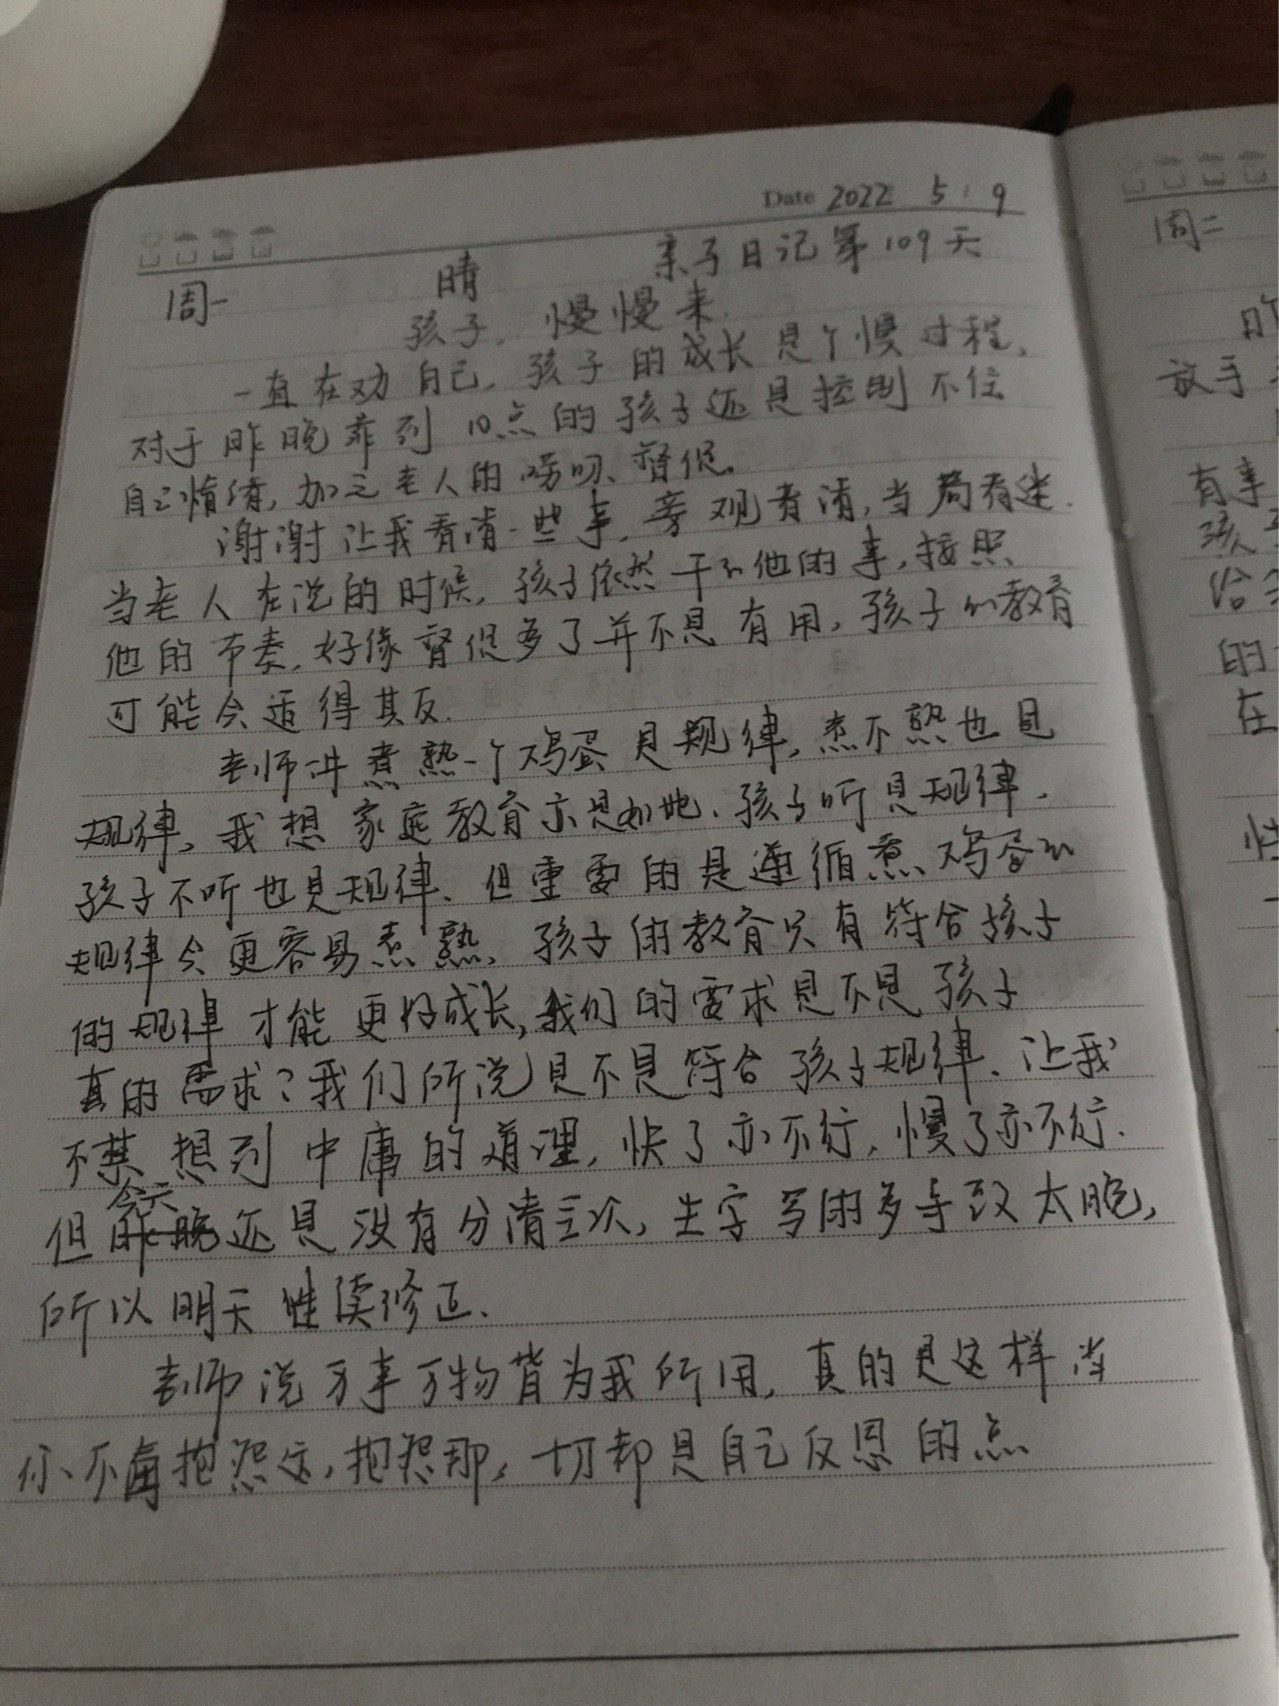 Date 2022 5.9
周一 晴 亲子日记第109天
孩子,慢慢来.
一直在劝自己,孩子的成长是个慢过程,
对于昨晚弄到10点的孩子还是控制不住
自己情绪,加之老人的唠叨、督促。
谢谢让我看清一些事,旁观者清,当局者迷.
当老人在说的时候,孩子依然干的他的事,按照
他的节奏,好像督促多了并不是有用,孩子的教育
可能会适得其反.
老师讲煮熟一个鸡蛋是规律,煮不熟也是
规律,我想家庭教育亦是如此、孩子听是规律、
孩子不听也是规律、但重要的是遵循煮鸡蛋的
规律会更容易煮熟、孩子的教育只有符合孩子
的规律才能更好成长,我们的需求是不是孩子
真的需求?我们所说是不是符合孩子规律、让我
不禁想到中庸的道理,快了亦不行,慢了亦不行.
但今天还是没有分清主次,生字写的多导致太晚,
所以明天继续修正.
老师说万事万物皆为我所用,真的是这样当
你不再抱怨这,抱怨那,一切都是自己反思的点
周二
昨
放手
有事
孩子
给
的
在